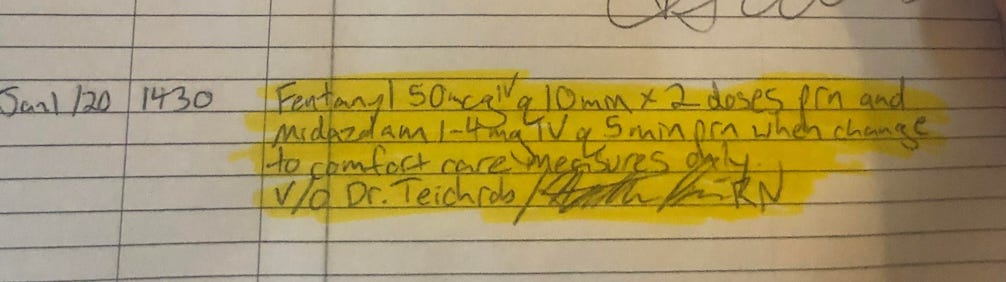 Jan1/20 1430 Fentanyl 50mcg IV q 10min x 2 doses prn and
midazolam 1-4mg IV q 5min prn when change
to comfort care measures only.
V/O Dr. Teichrob / RN